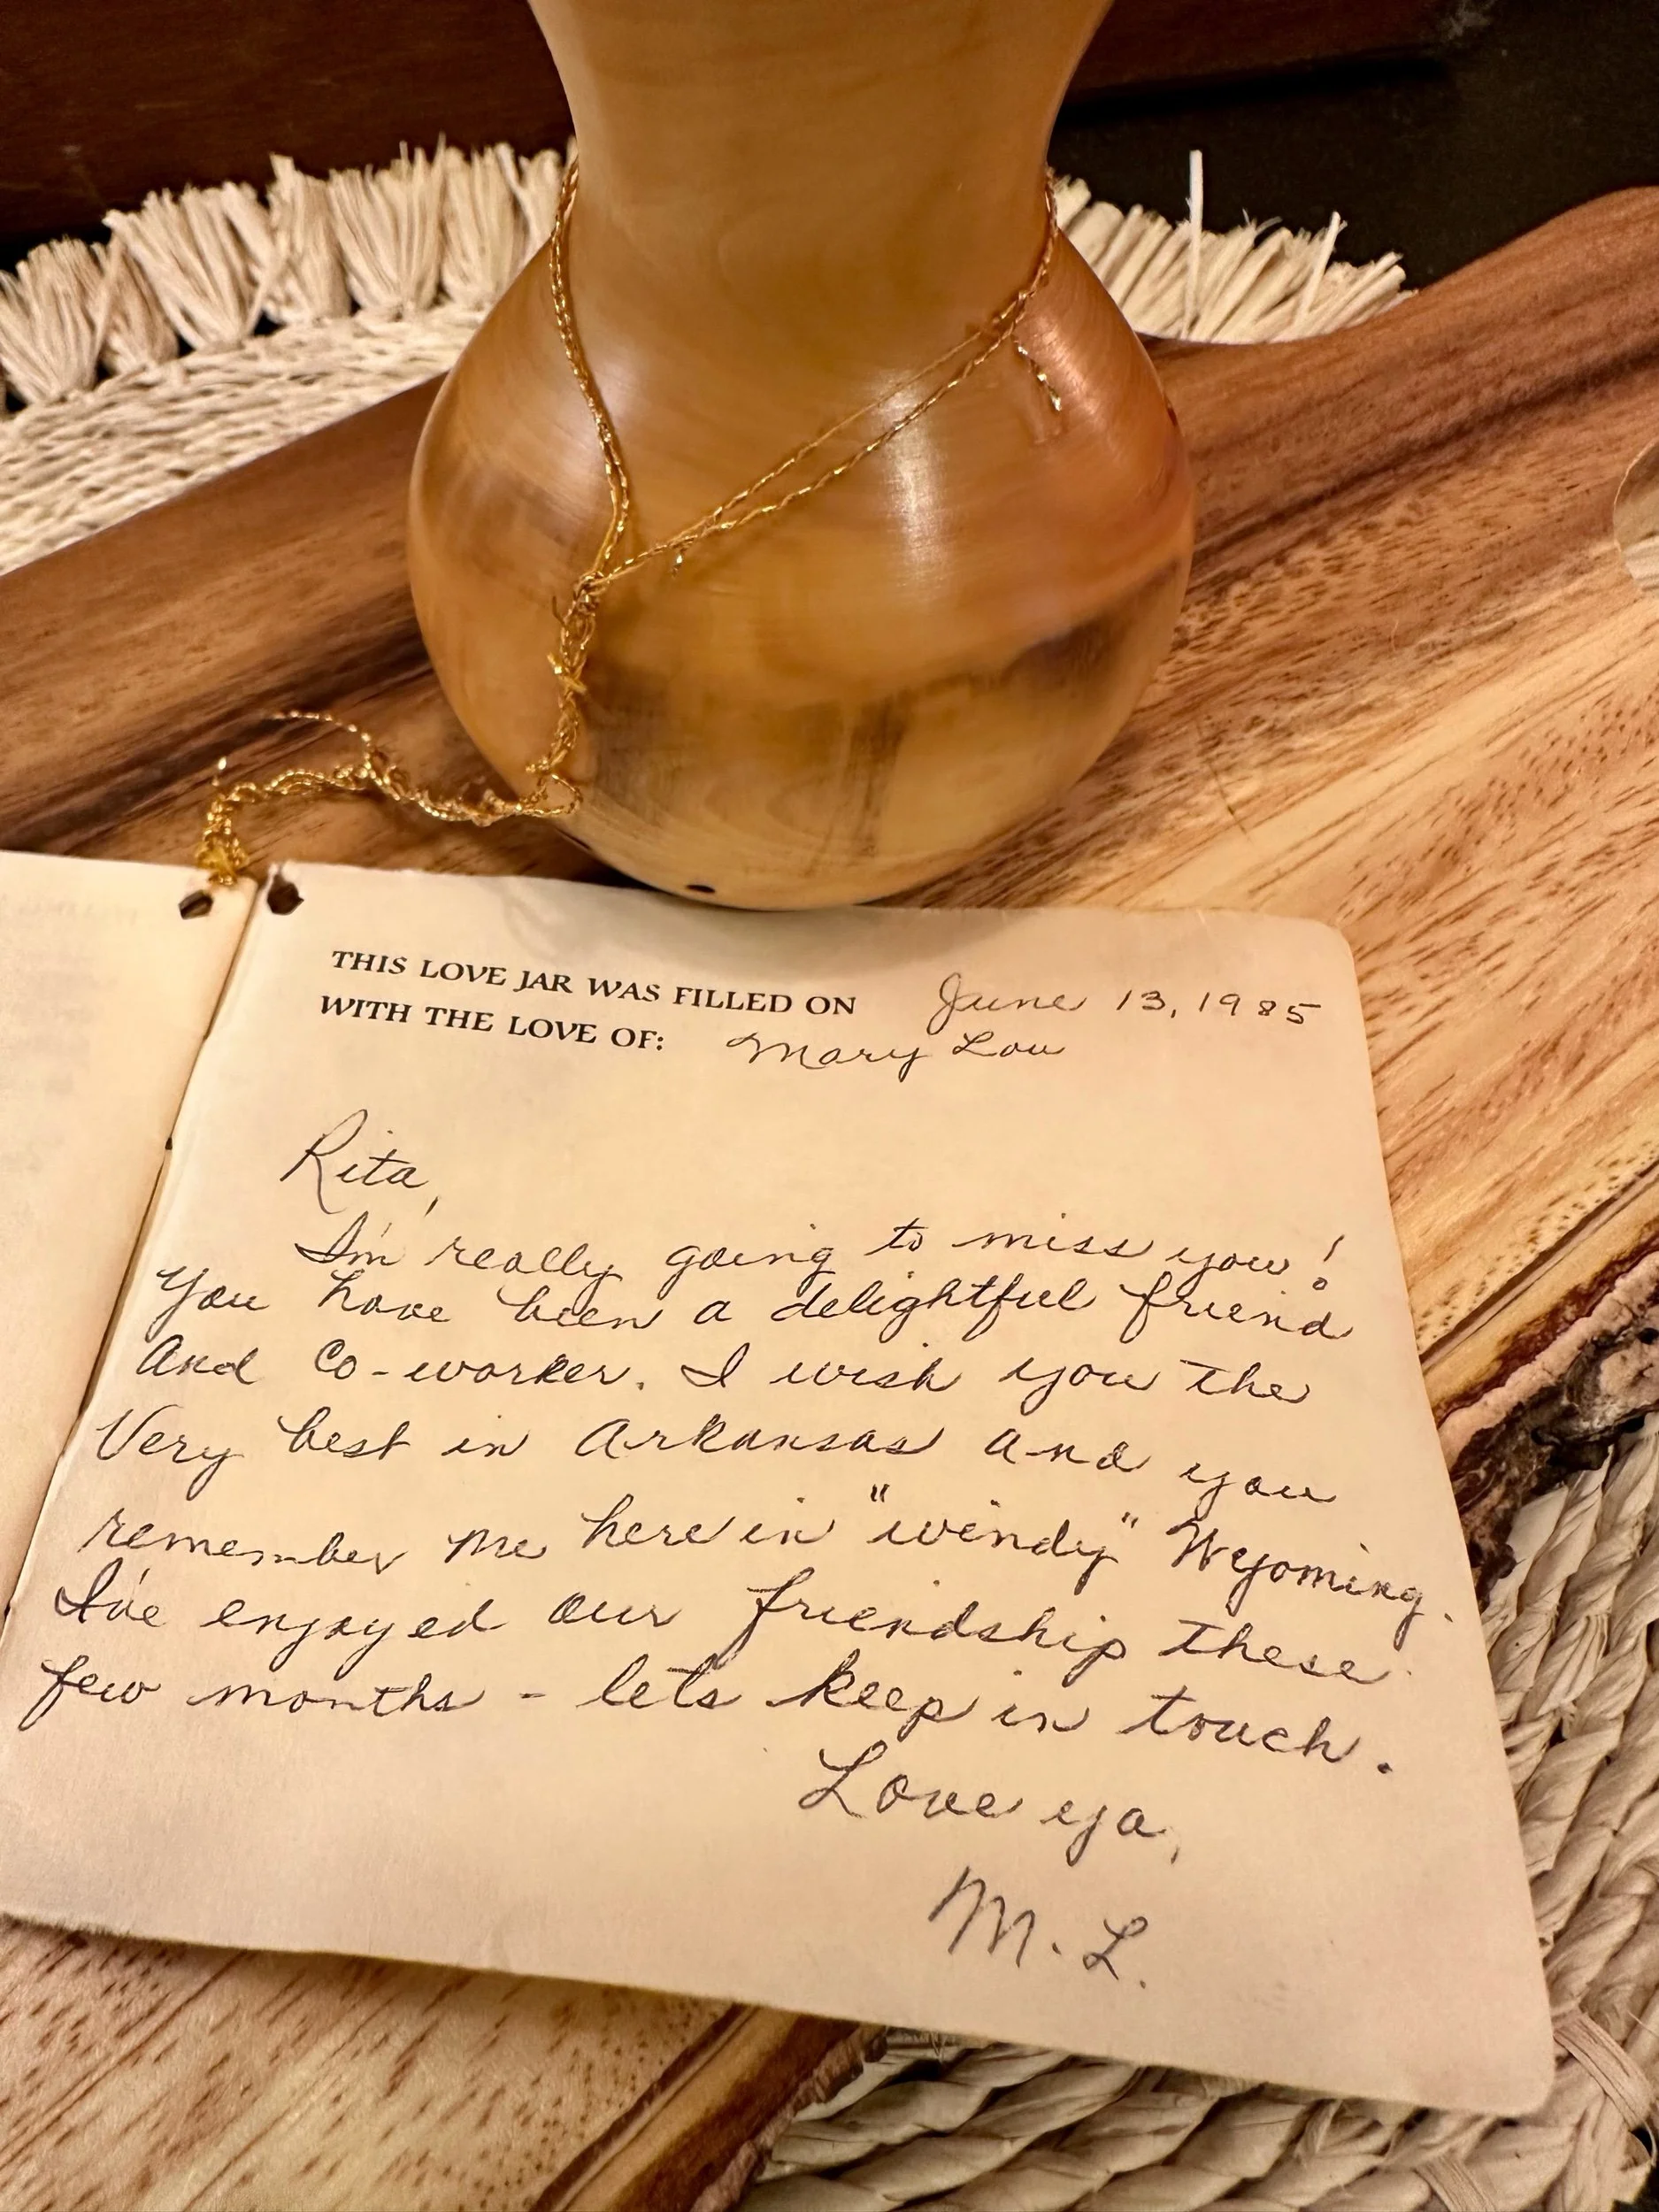 THIS LOVE JAR WAS FILLED ON June 13, 1985
WITH THE LOVE OF: Mary Lou
Rita,
I'm really going to miss you!
You have been a delightful friend
And Co-worker. I wish you the
Very best in Arkansas and you
remember me here in "windy" Wyoming.
I've enjoyed our friendship these
few months - lets keep in touch.
Love ya,
M. L.